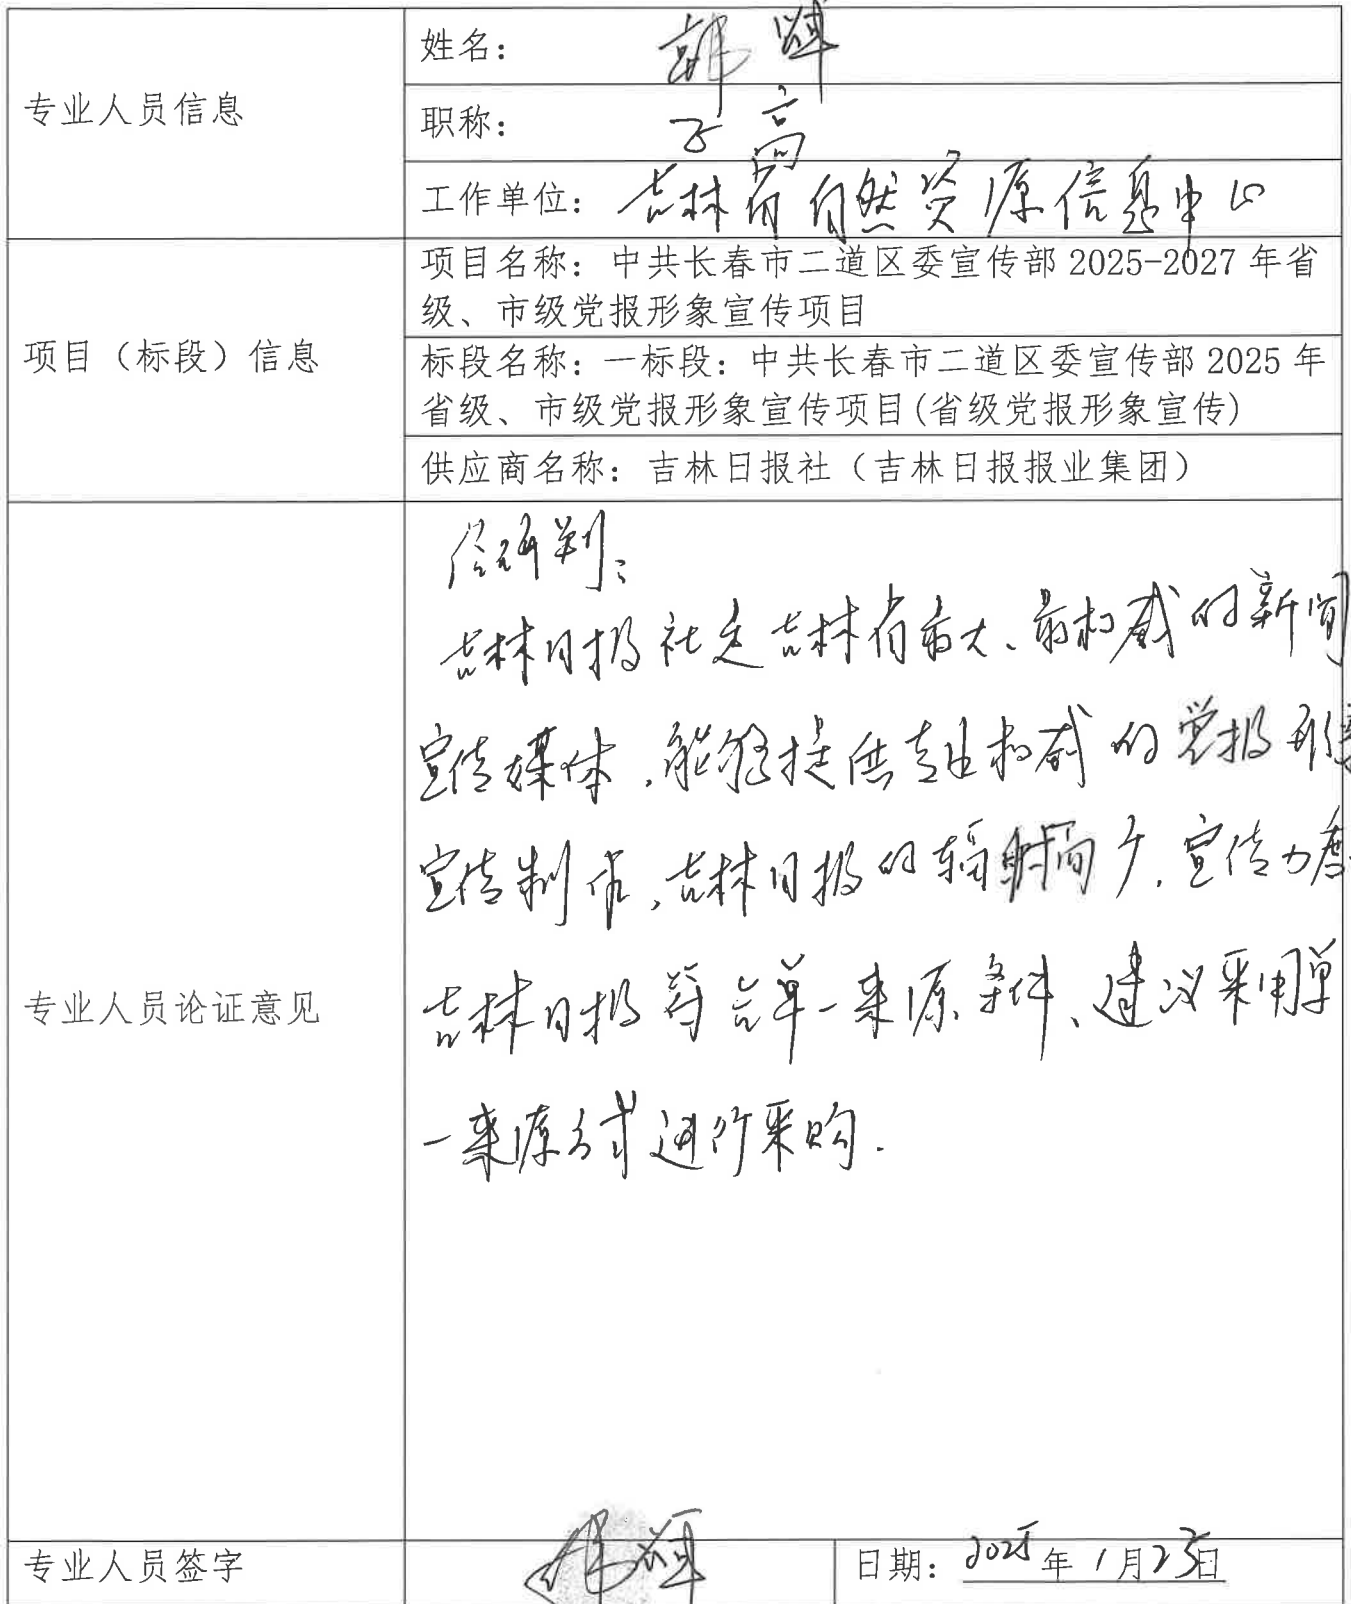 专业人员信息
姓名：韩辉
职称：正高
工作单位：吉林省自然资源信息中心
项目（标段）信息
项目名称：中共长春市二道区委宣传部 2025-2027 年省
级、市级党报形象宣传项目
标段名称：一标段：中共长春市二道区委宣传部 2025 年
省级、市级党报形象宣传项目(省级党报形象宣传)
供应商名称：吉林日报社（吉林日报报业集团）
专业人员论证意见
经研判：
吉林日报社是吉林省最大、最权威的新闻
宣传媒体，能够提供专业权威的党报形象
宣传制作，吉林日报的辐射面广，宣传力度
吉林日报符合单一来源条件、建议采用单
一来源方式进行采购.
专业人员签字
韩辉
日期：2025年1月23日